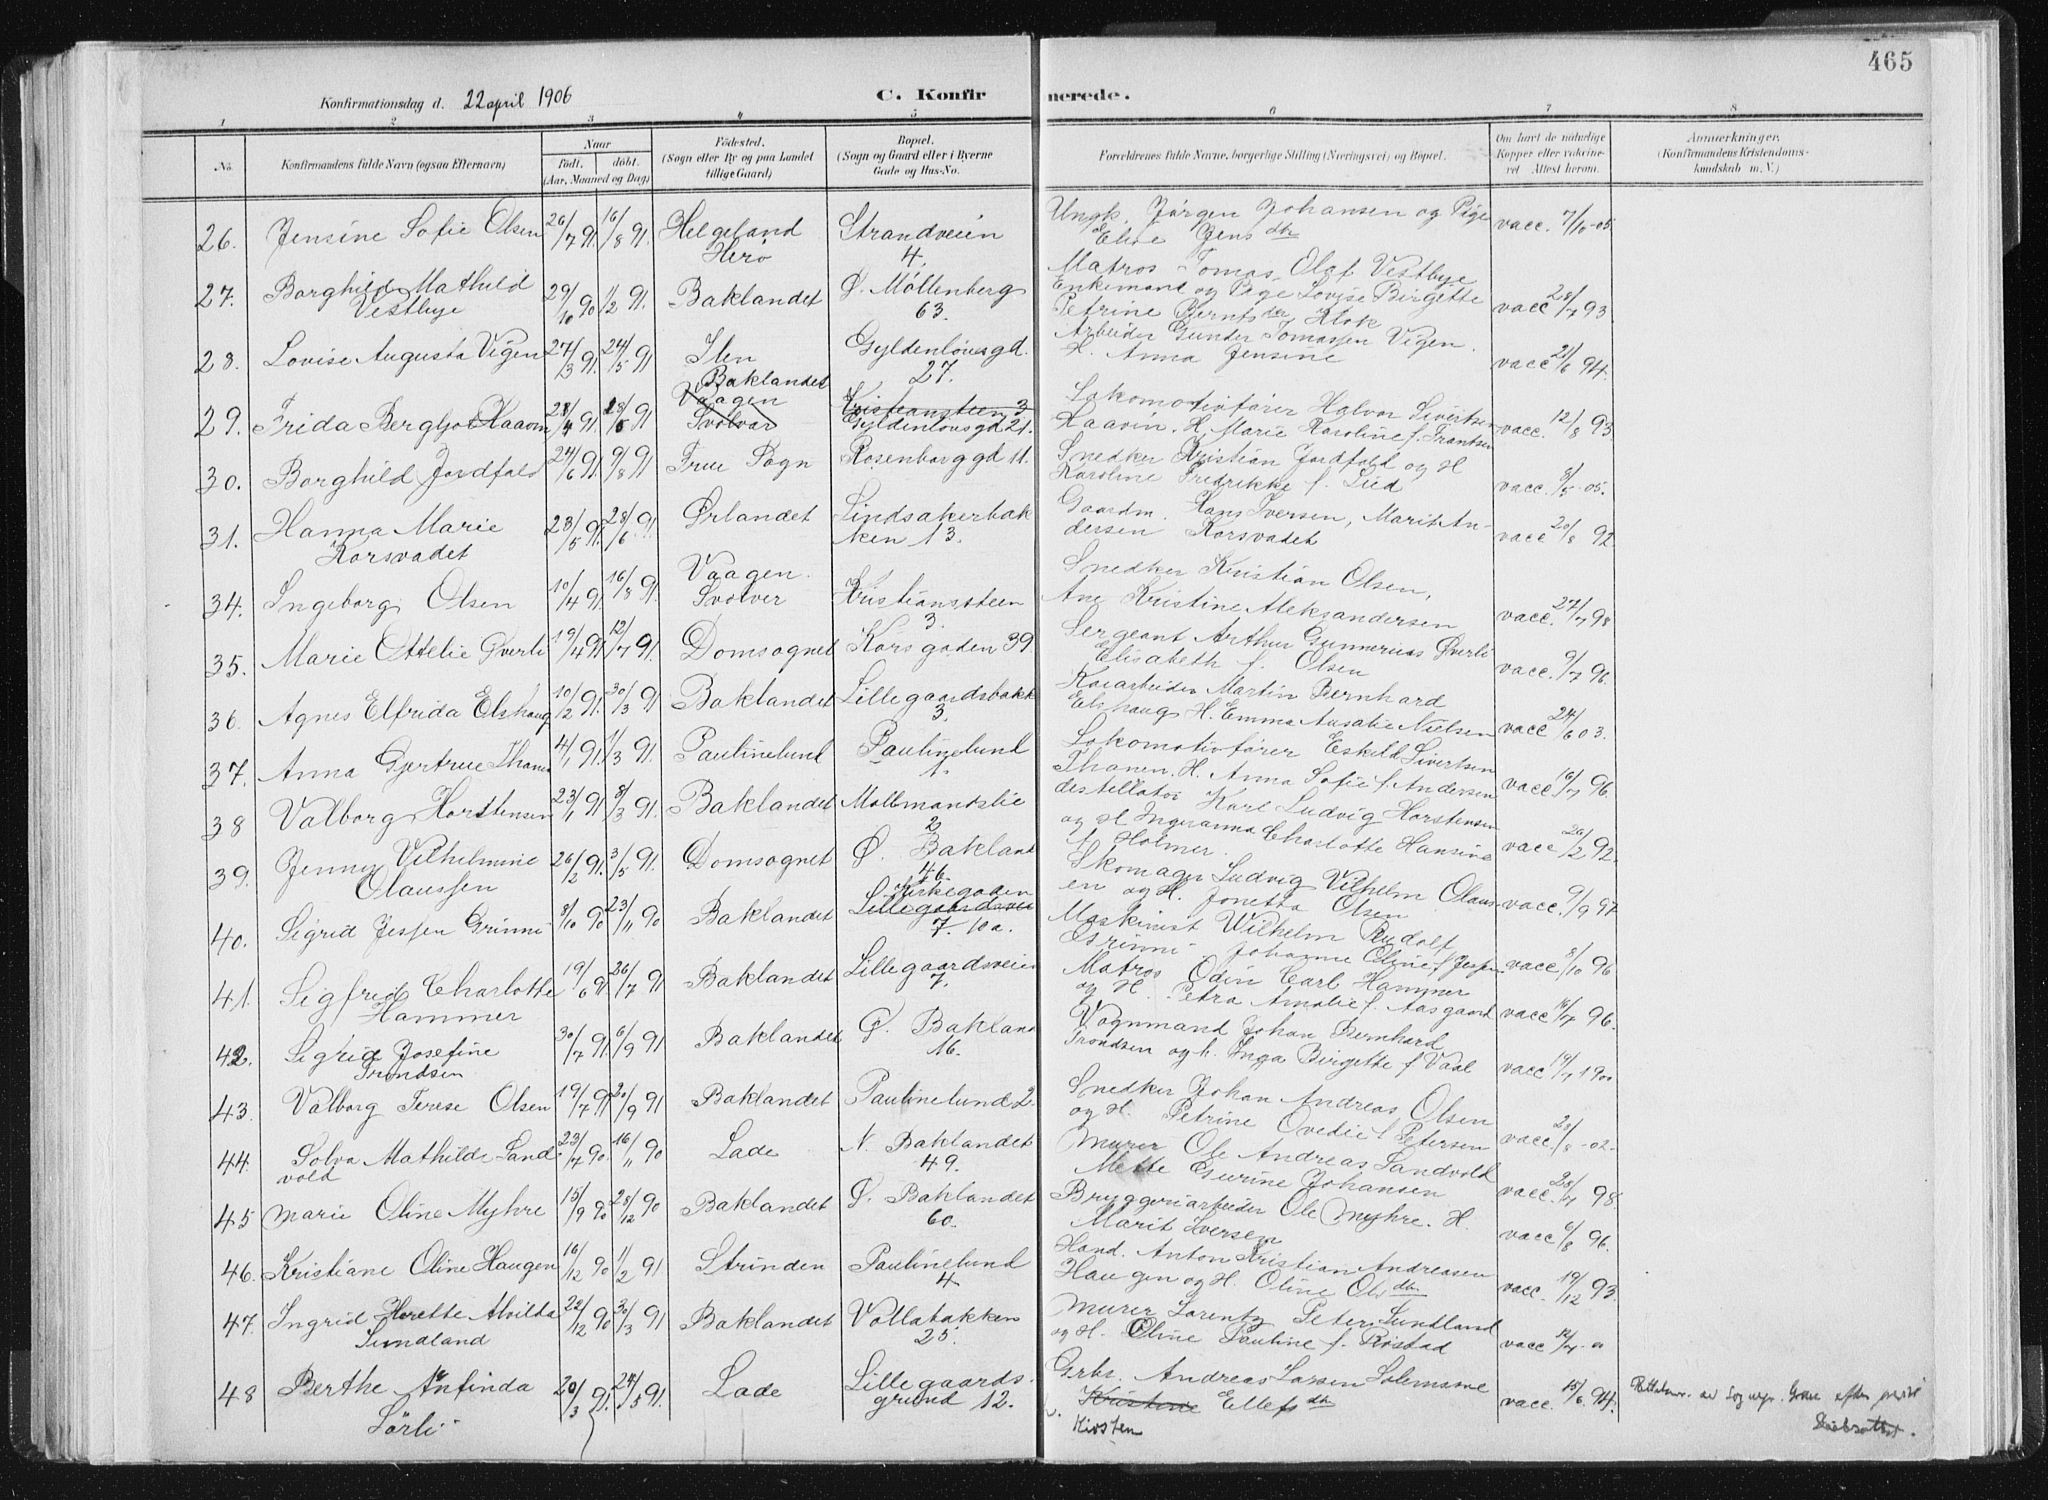 465
Konfirmationsdag d. 22 april 1906
C. Konfirmerede.
1 2 3 4 5 6 7 8
No. Konfirmandens fulde Navn (ogsaa Efternavn) Naar Født. døbt. (Aar, Maaned og Dag) Fødested. (Sogn eller By og paa Landet tillige Gaard) Bopæl. (Sogn og Gaard eller i Byerne Gade og Hus-No. Forældrenes fulde Navne, borgerlige Stilling (Næringsvei) og Bopæl. Om havt de naturlige Kopper eller vakcineret. Attest herom. Anmærkninger. (Konfirmandens Kristendomskundskab m. V.)
26. Jensine Sofie Olsen 26/7 91. 16/8 91. Helgeland Herø Strandveien 4. Ungk. Jørgen Johansen og Pige Elise Jens dtr vacc. 7/10-05
27. Borghild Mathild Vestbye 29/10 90 1/2 91. Baklandet Ø. Møllenberg 63. Matros Tomas Olaf Vestbye Enkemand og Pige Lovise Birgette Petrine Berntsdtr Klok vacc 28/7 93
28. Lovise Augusta Vigen 27/3 91. 24/5 91 Ilen Gyldenløvesgd. 27. Arbeider Gunder Tomassen Vigen. H. Anna Jensine vacc 21/6 94.
29. Frida Bergljot Haavin 28/4 91. 28/6 91 Baklandet Vaagen Svolvær Kristiansteen 3 Gyldenløvsgd 21. Lokomotivfører Halvor Sivertsen Haavin. H. Marie Karoline f. Frantsen vacc. 12/8 93
30. Borghild Jordfald 24/6 91. 9/8 91 Frue Sogn Rosenborggd 11. Snedker Kristian Jordfald og H Karoline Fredrikke f. Lied vacc. 8/5-05.
31. Hanna Marie Korsvadet 23/5 91. 28/6 91. Ørlandet Lindsakerbakken 13. Gaardm. Hans Iversen, Marit Andersen Korsvadet vacc 20/8 92
34. Ingeborg Olsen 10/4 91. 16/8 91. Vaagen. Svolver Kristianssteen 3. Snedker Kristian Olsen, Ane Kristine Aleksandersen vacc. 27/7 98
35. Marie Ottelie Øverli 19/4 91 12/7 91. Domsognet Korsgaden 39 Sergeant Arthur Gunnerius Øverli Elisabeth f. Olsen vacc. 9/7 96.
36. Agnes Elfrida Elshaug 10/2 91. 30/3 91 Baklandet Lillegaardsbakk 3. Kaiarbeider Martin Bernhard Elshaug H. Emma Ansalie Nielsen vacc 24/6 03.
37. Anna Gjertrue Thanem 4/1 91. 1/3 91 Paulinelund Paulinelund 1. Lokomotivfører Eskild Sivertsen Thanem. H. Anna Sofie f. Andersen vacc 16/7 96
38 Valborg Horstensen 23/1 91 8/3 91. Baklandet Mollmandslie 2 destillatør Karl Ludvig Horstensen og H Ingeranna Charlotte Hansine f. Holmer. vacc 26/2 92.
39. Jenny Vilhelmine Olaussen 26/2 91. 3/5 91. Domsognet Ø. Bakland 46. Skomager Ludvig Vilhelm Olausen og H. Jonetta Olsen vacc. 9/9 97
40. Sigrid Jessen Grinni 8/10 90 23/11 90 Baklandet Kirkegaden Lillegaardsvei 7. 10a. Maskinist Wilhelm Rudolf Grinni Johanne Oline f Jessen vacc 8/10 96
41. Sigfred Charlotte Hammer 19/6 91. 26/7 91 Baklandet Lillegaardsveien 7. Matros Odin Carl Hammer og H. Petra Amalie f. Aasgaard vacc 16/7 96.
42. Sigrid Josefine Trondsen 30/7 91. 6/9 91 Baklandet Ø. Bakland 16. Vognmand Johan Bernhard Trondsen og h. Inga Birgette f Vaal vacc 19/7 1900
43. Valborg Terese Olsen 19/7 91 20/9 91 Baklandet Paulinelund 2. Snedker Johan Andreas Olsen og H. Petrine Ovedie f Petersen vacc 28/8-02.
44. Solva Mathilde Sandvold 23/7 90. 16/11 90 Lade N. Baklandet 49. Murer Ole Andreas Sandvold Mette Gurine Johansen vacc. 28/7 98.
45 Marie Oline Myhre 15/9 90 28/12 90 Baklandet Ø. Baklandet 60. Bryggeriarbeider Ole Myhre. H. Marit Iversen vacc 6/8 96.
46. Kristiane Oline Haugen 16/12 90 1/2 91 Strinden Paulinelund 4 Hand. Anton Kristian Andreasen Haugen og H. Oline Ols dtr. vacc. 19/12 93.
47. Ingrid Horette Alvilda Sundland 22/12 90 30/3 91 Baklandet Vollabakken 25. Murer Lorentz Peter Sundland og H. Oline Pauline f. Røstad vacc 12/7-01
48 Berthe Anfinda Sörli 20/3 91. 24/5 91. Lade Lillegaardsgrund 12. Grbr. Andreas Larsen Solemsmo Kristine Ellefs dtr Kirsten vacc. 15/6 94. av Sognepr.